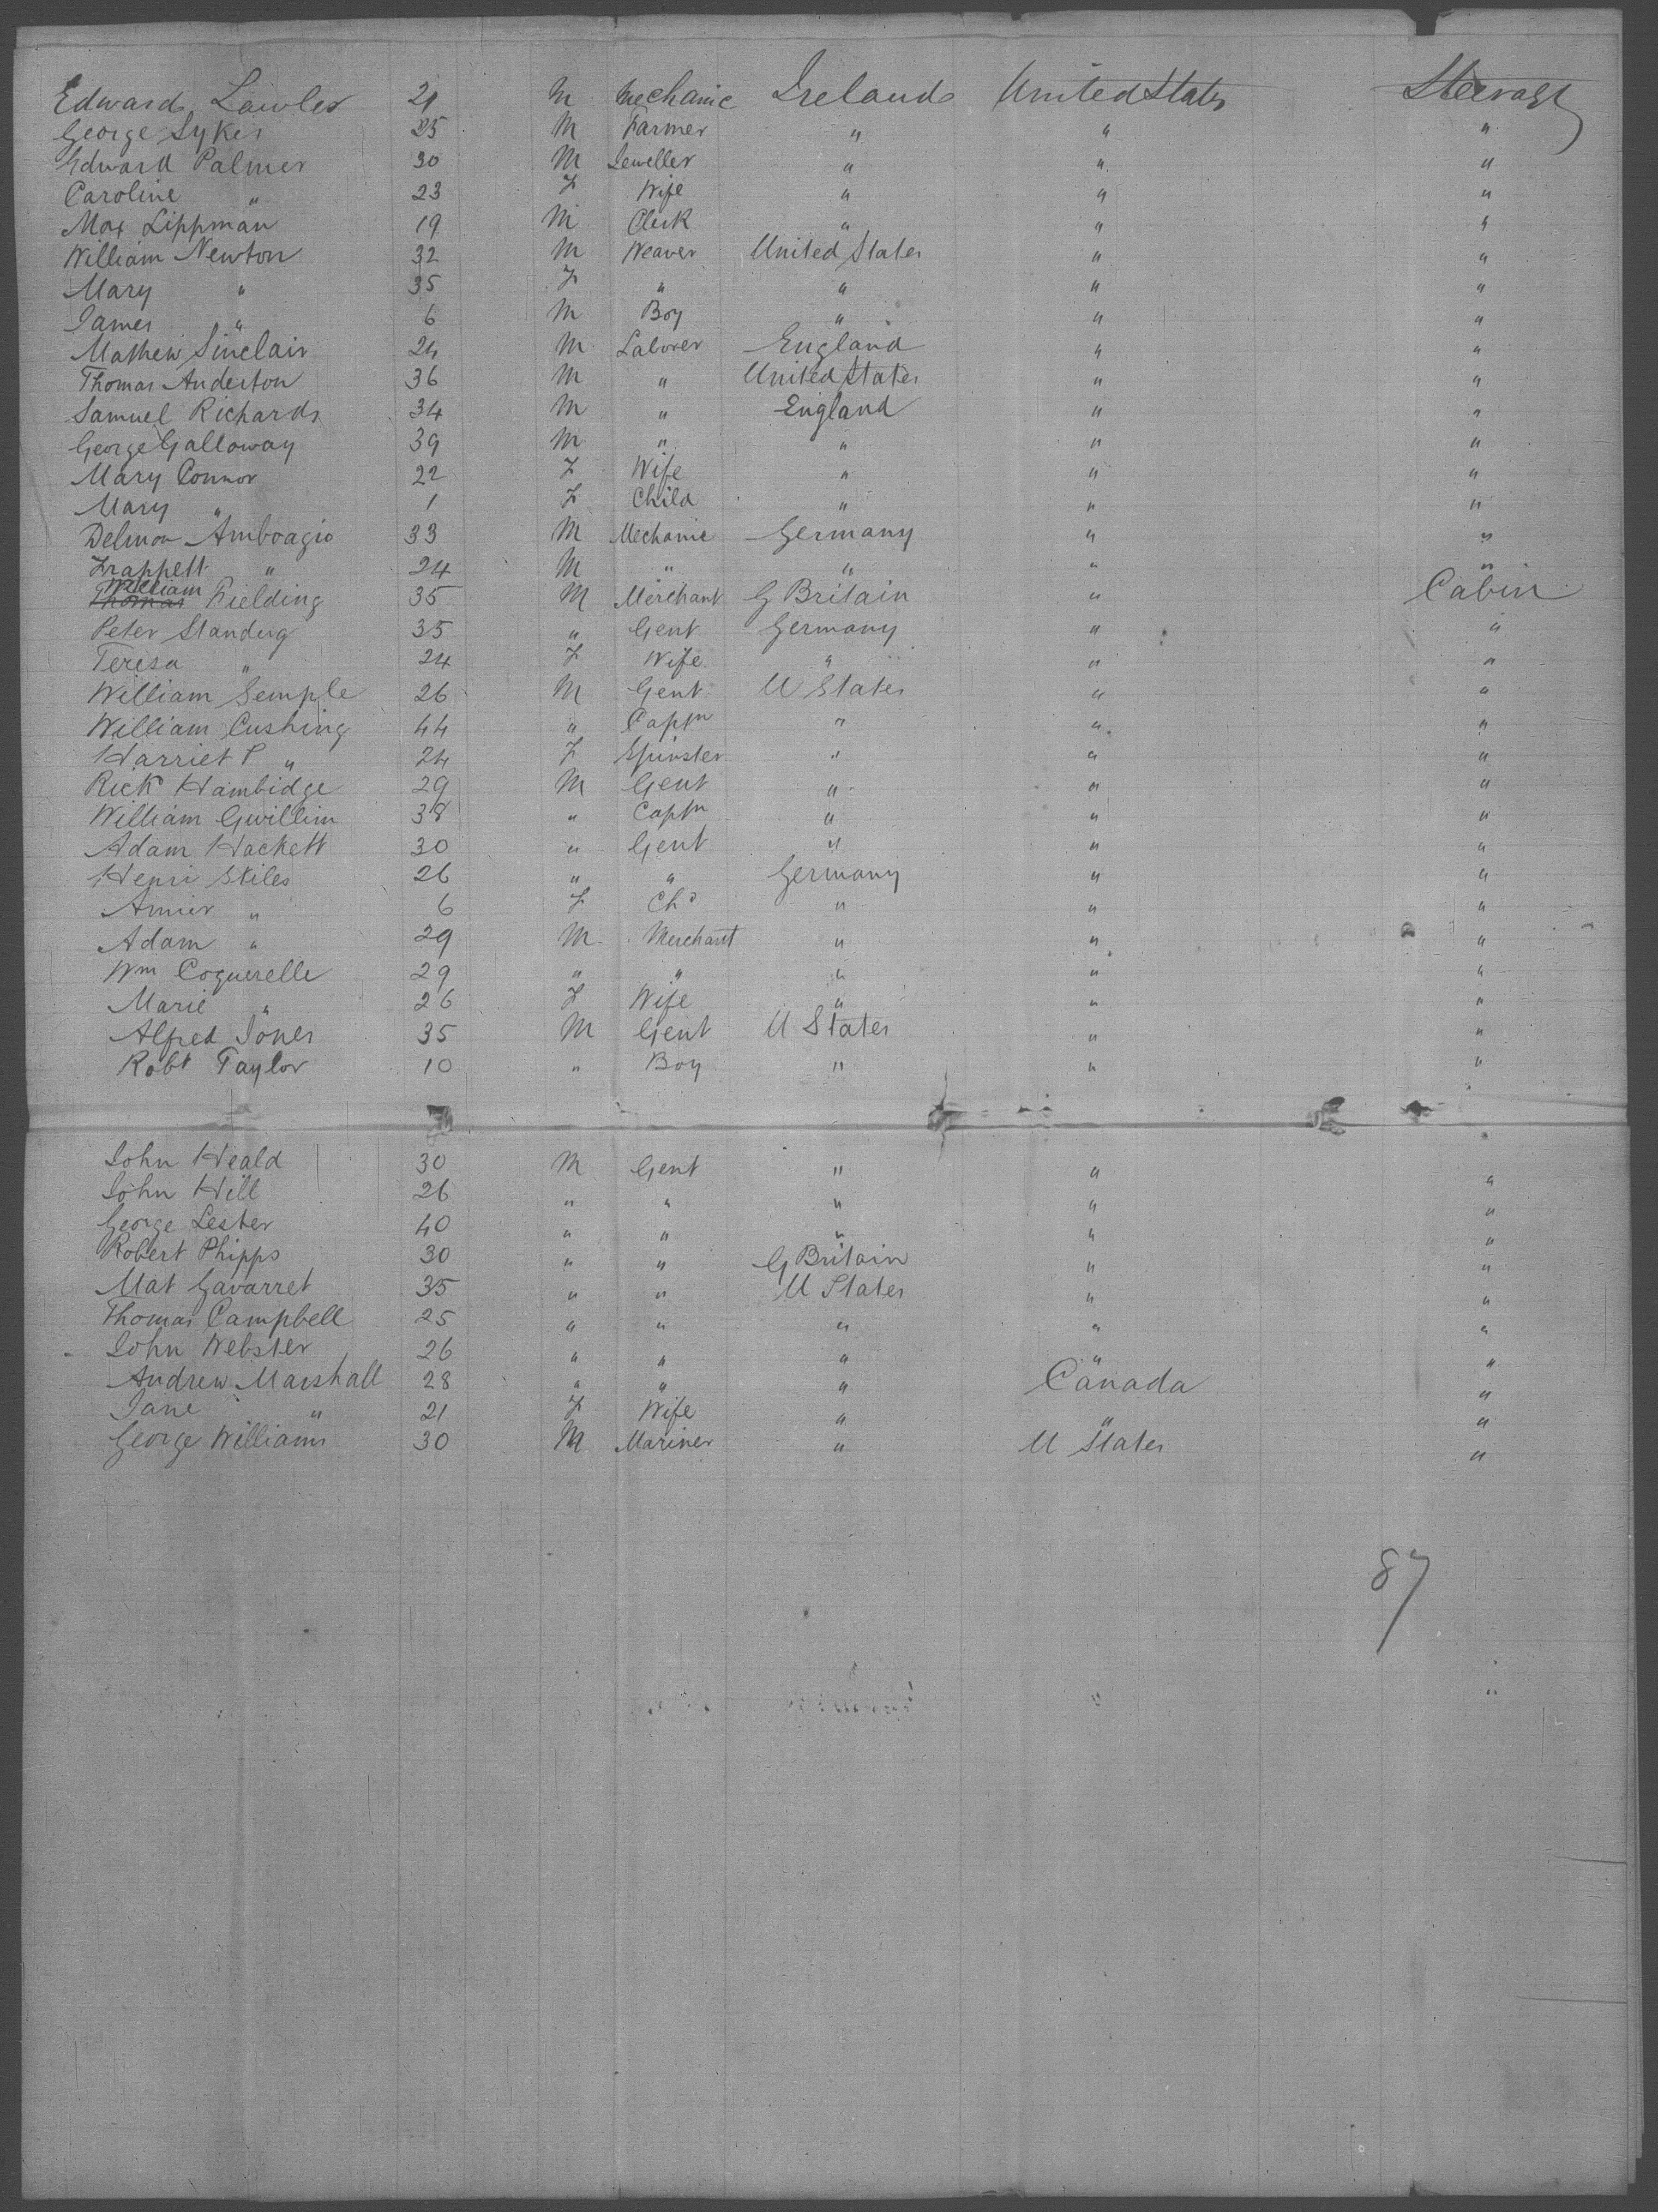 Edward Lawler 21 M Mechanic Ireland United States Steerage
George Sykes 25 M Farmer " " "
Edward Palmer 30 M Jeweller " " "
Caroline " 23 F Wife " " "
Max Lippman 19 M Clerk " " "
William Newton 32 M Weaver United States " "
Mary " 35 F " " " "
James " 6 M Boy " " "
Mathew Sinclair 24 M Laborer England " "
Thomas Anderton 36 M " United States " "
Samuel Richards 34 M " England " "
George Galloway 39 M " " " "
Mary Connor 22 F Wife " " "
Mary " 1 F Child " " "
Delmon Amboagio 33 M Mechanic Germany " "
Frappett " 24 M " " " "
Thomas William Fielding 35 M Merchant G Britain " Cabin
Peter Standug 35 " Gent Germany " "
Teresa " 24 F Wife " " "
William Semple 26 M Gent U States " "
William Cushing 44 " Captn " " "
Harriet P " 24 F Spinster " " "
Rick Hambidge 29 M Gent " " "
William Gwillim 38 " Captn " " "
Adam Hackett 30 " Gent " " "
Henri Stiles 26 " " Germany " "
Annier " 6 F Chd " " "
Adam " 29 M Merchant " " "
Wm Coquerelle 29 " " " " "
Marie " 26 F Wife " " "
Alfred Jones 35 M Gent U States " "
Robt Taylor 10 " Boy " " "
John Heald 30 M Gent " " "
John Hill 26 " " " " "
George Lester 40 " " " " "
Robert Phipps 30 " " G Britain " "
Mat Gavarret 35 " " U States " "
Thomas Campbell 25 " " " " "
John Webster 26 " " " " "
Andrew Marshall 28 " " " Canada "
Jane " 21 F Wife " " "
George Williams 30 M Mariner " U States "
87